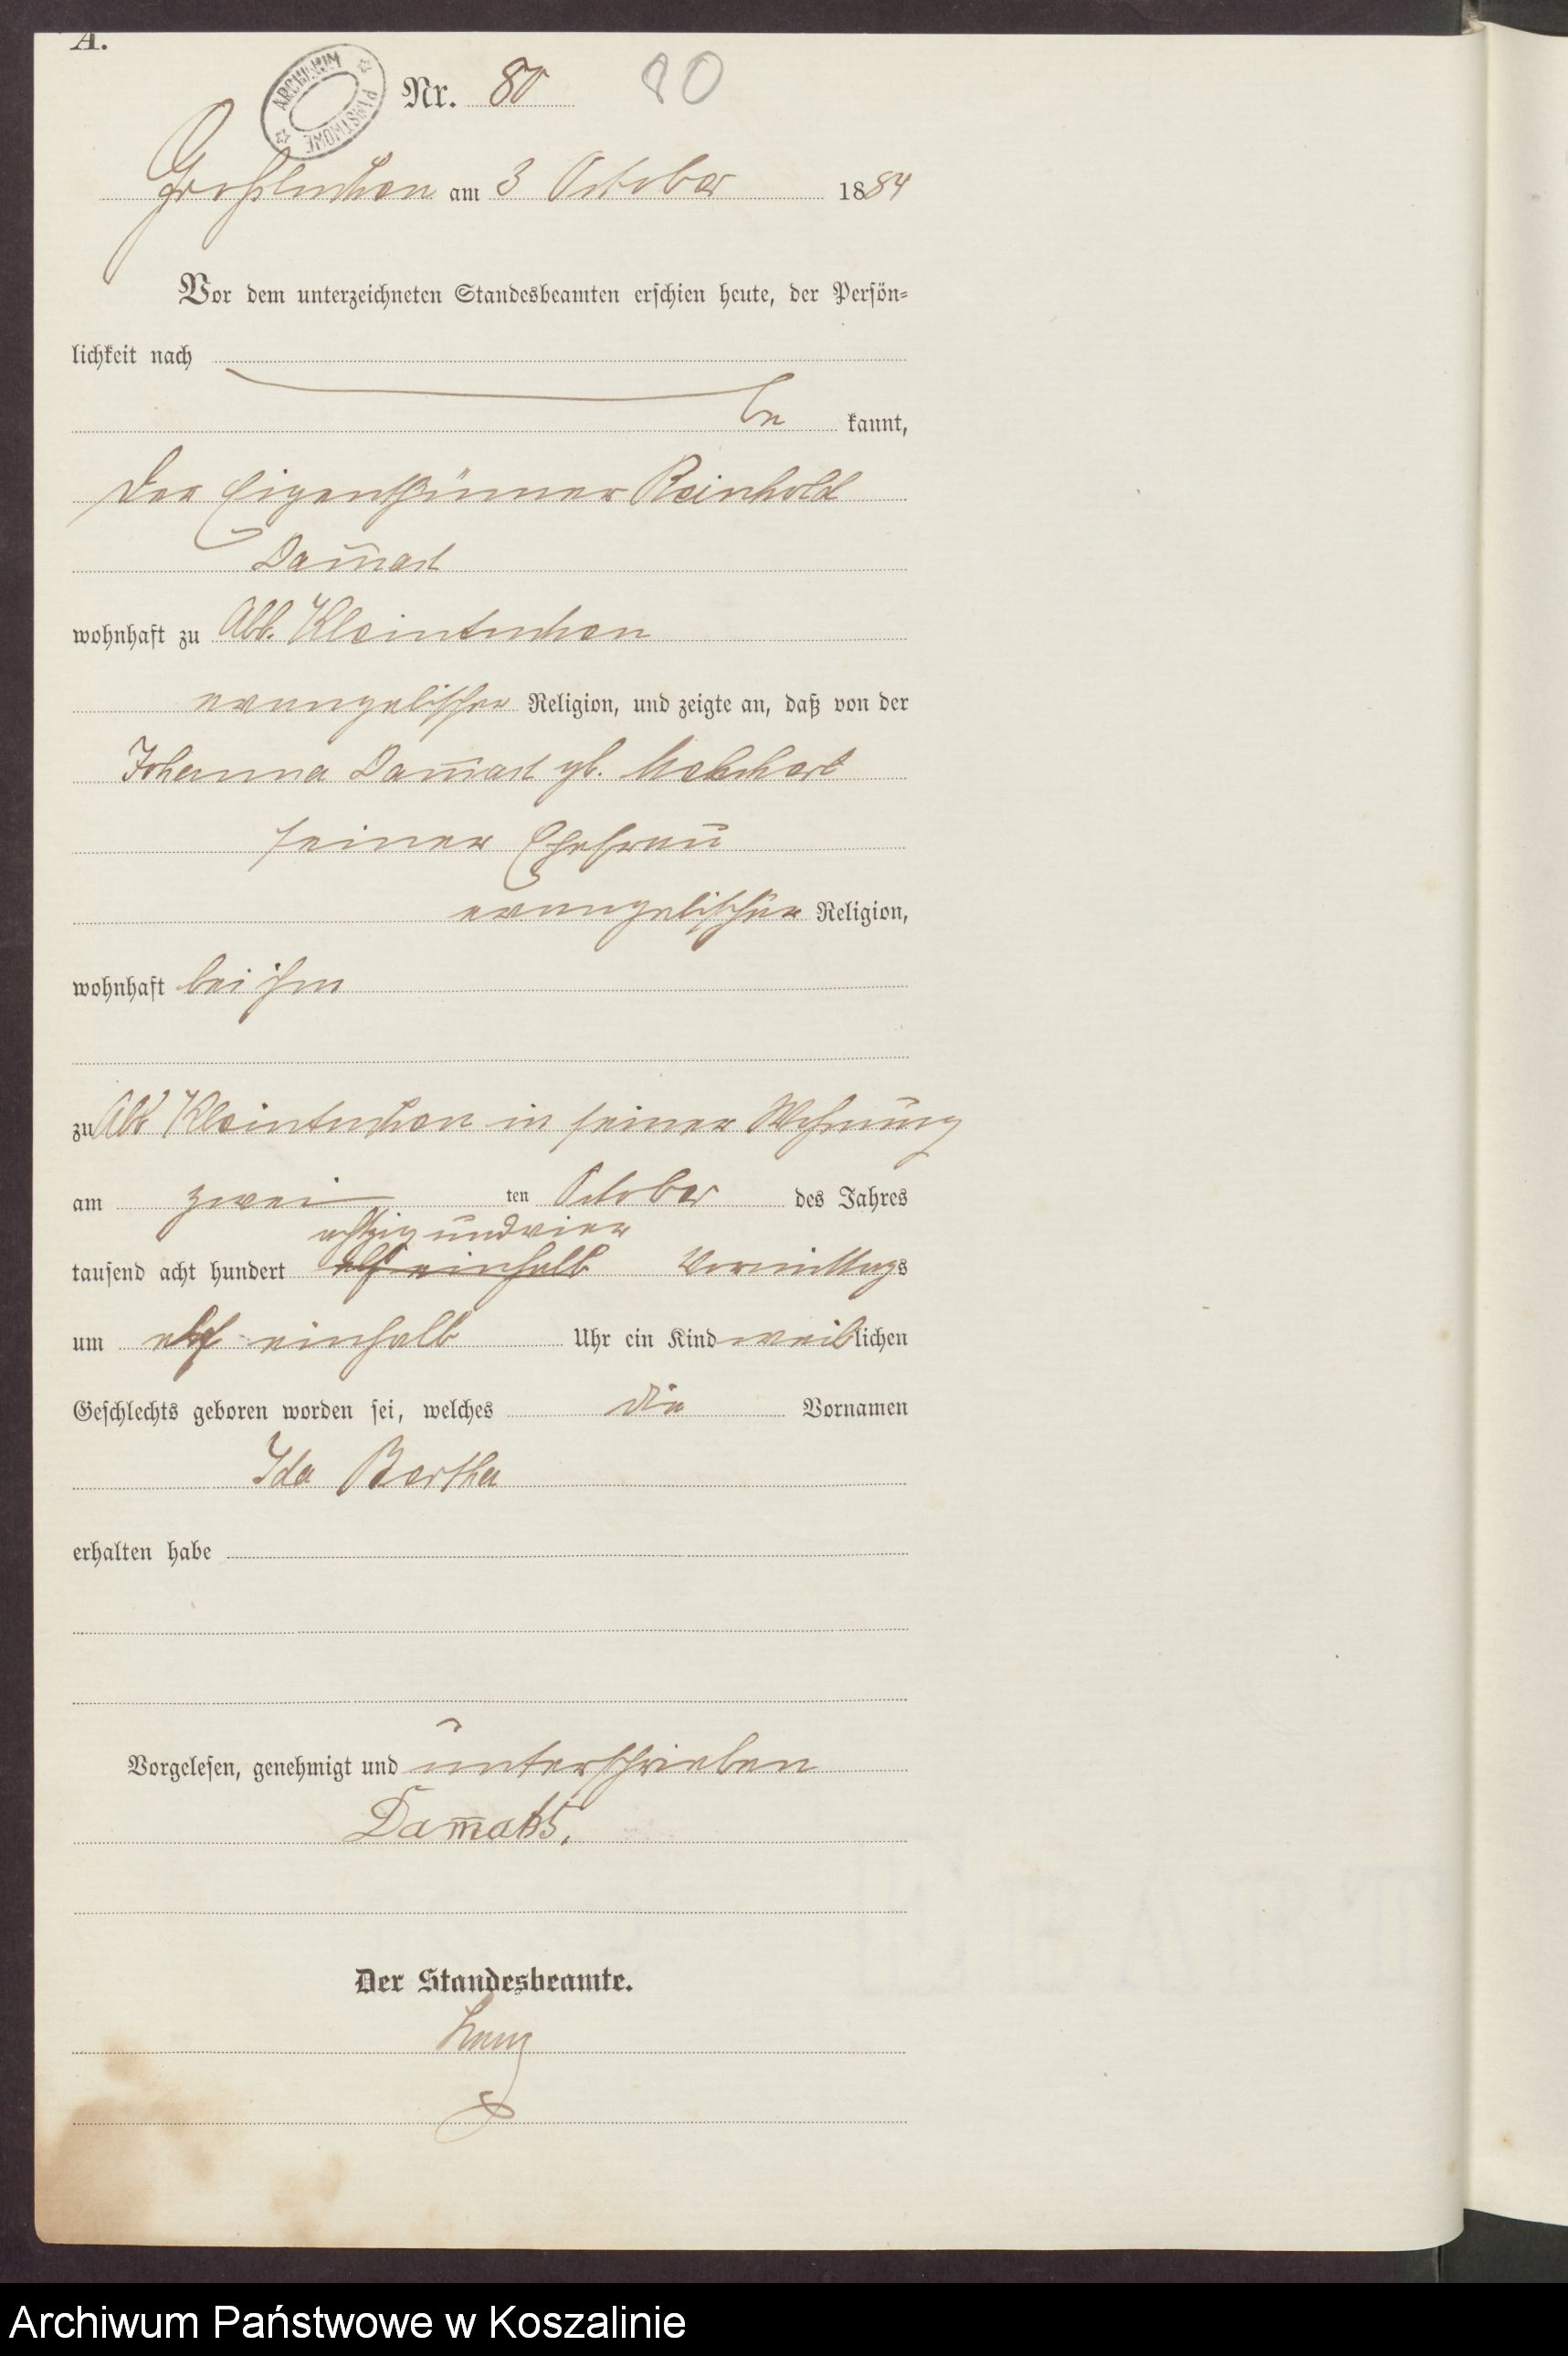 A.
ARCHIWUM PAŃSTWOWE
Nr. 80 80
am 3 October 1884
Vor dem unterzeichneten Standesbeamten erschien heute, der Persön-
lichkeit nach
be kannt,
der Eigenthümer Reinhold
wohnhaft zu Abb. Kleintuchen
evangelischer Religion, und zeigte an, daß von der
Johanna geb.
seiner Ehefrau
evangelischer Religion,
wohnhaft bei ihm
zu Abb Kleintuchen in seiner Wohnung
am zwei ten October des Jahres
achtzig und vier
tausend acht hundert elf einhalb Vormittags
um elf einhalb Uhr ein Kind weiblichen
Geschlechts geboren worden sei, welches die Vornamen
Ida Bertha
erhalten habe
Vorgelesen, genehmigt und unterschrieben
Der Standesbeamte.
Archiwum Państwowe w Koszalinie